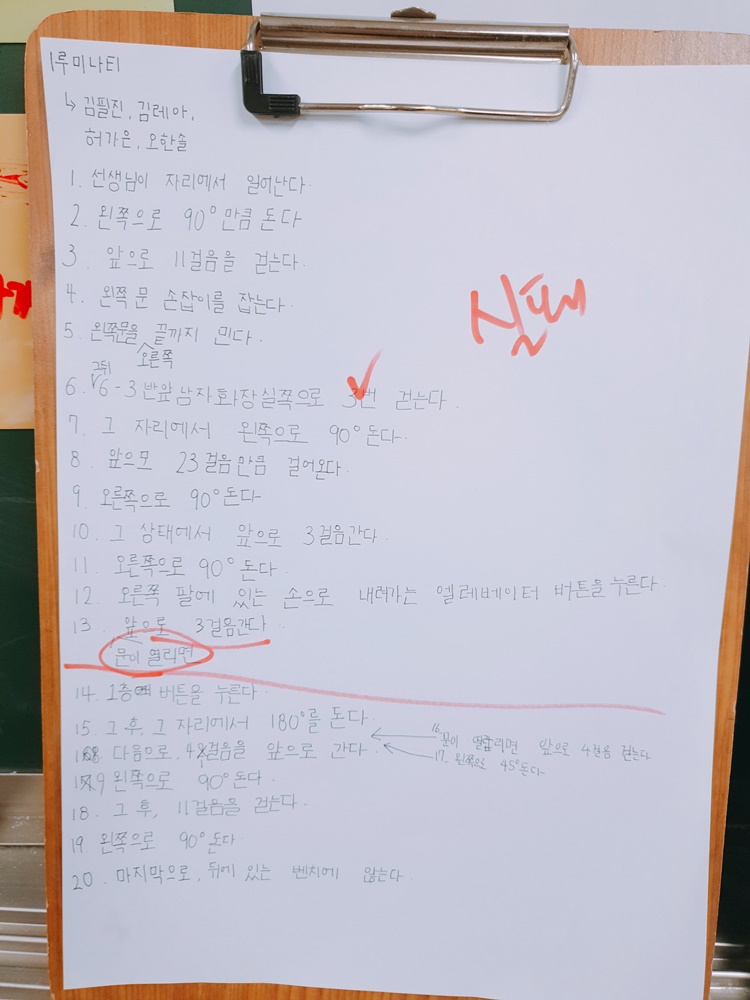 1루미나티
↳ 김필진, 김레아,
허가은, 오한솔
1. 선생님이 자리에서 일어난다.
2. 왼쪽으로 90°만큼 돈다
3. 앞으로 11걸음을 걷는다.
실패
4. 왼쪽 문 손잡이를 잡는다.
5. 왼쪽문을 끝까지 민다.
오른쪽
그뒤
6. 6-3반앞 남자화장실쪽으로 3번 걷는다.
7. 그 자리에서 왼쪽으로 90°돈다.
8. 앞으로 23걸음만큼 걸어온다.
9. 오른쪽으로 90°돈다
10. 그 상태에서 앞으로 3걸음간다.
11. 오른쪽으로 90°돈다.
12. 오른쪽 팔에 있는 손으로 내려가는 엘레베이터 버튼을 누른다.
13. 앞으로 3걸음간다
문이 열리면
14. 1층 버튼을 누른다.
15. 그 후, 그 자리에서 180°를 돈다.
16. 문이 열리면 앞으로 4걸음 걷는다
17. 왼쪽으로 45°돈다.
18 다음으로, 4걸음을 앞으로 간다.
19 왼쪽으로 90°돈다.
18. 그 후, 11걸음을 걷는다.
19 왼쪽으로 90°돈다
20. 마지막으로, 뒤에 있는 벤치에 않는다.